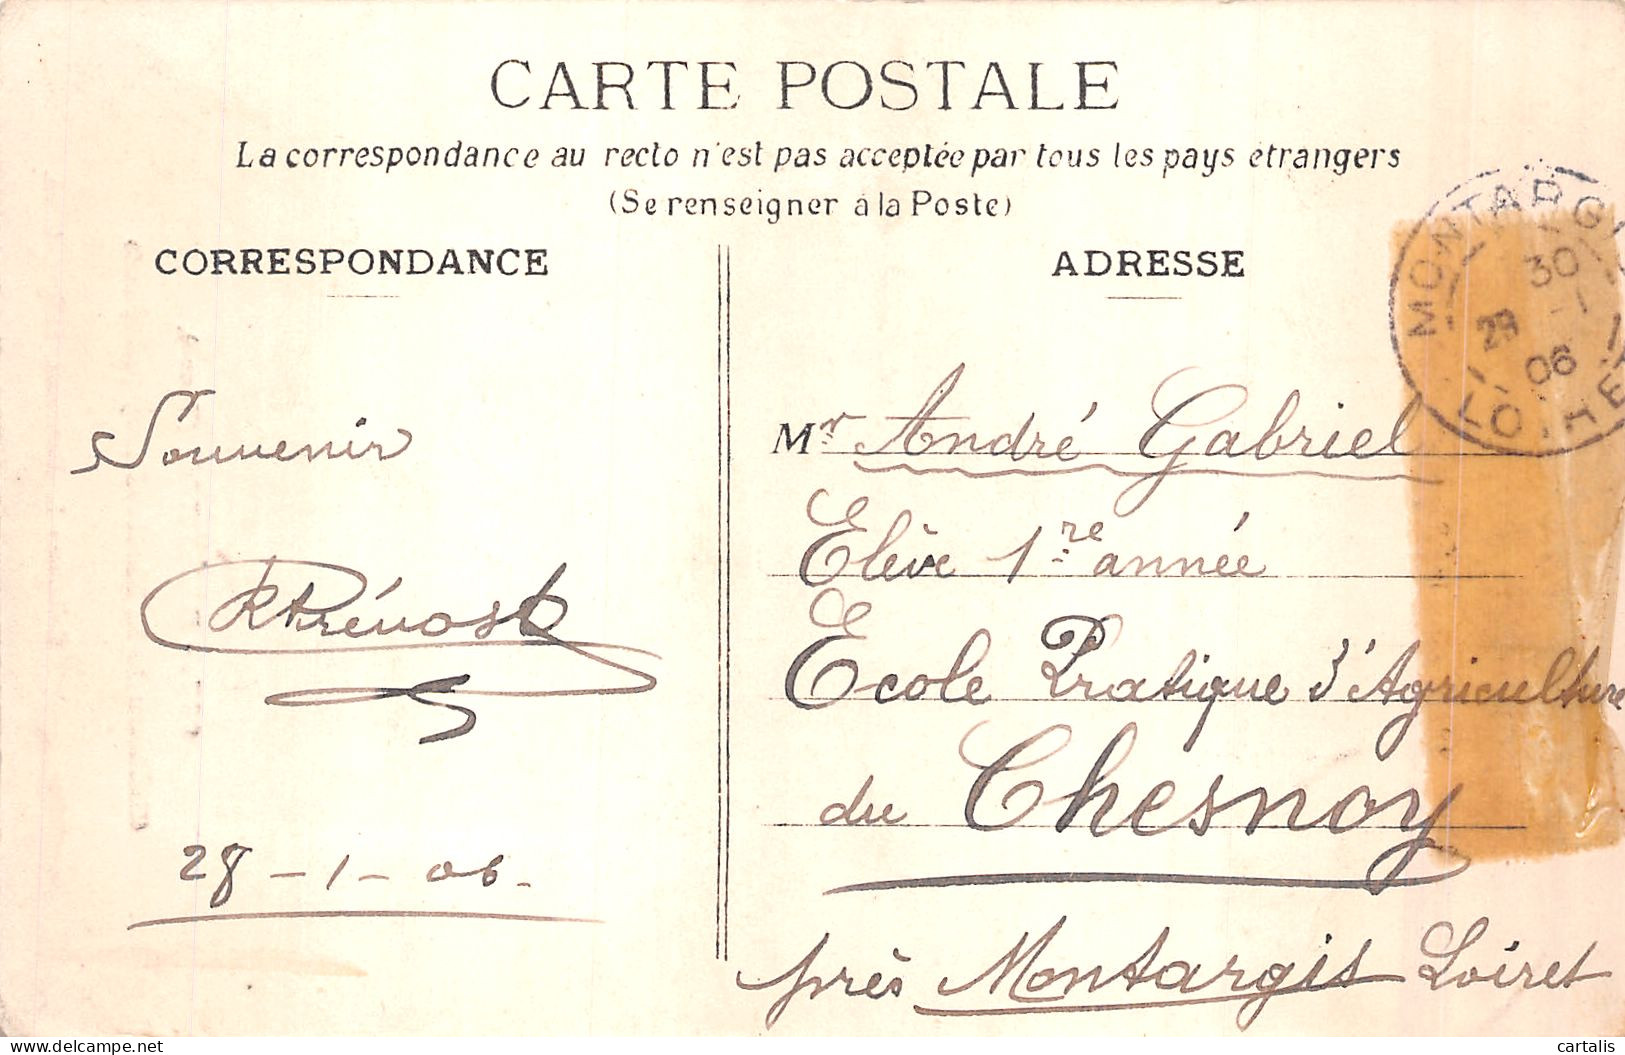 CARTE POSTALE
La correspondance au recto n'est pas acceptée par tous les pays étrangers
(Se renseigner à la Poste)
CORRESPONDANCE
ADRESSE
MONTARGI
30
29 -1
06
LOIRE
Souvenir
Prévost
28 - 1 - 06.
Mr André Gabriel
Elève 1re année
Ecole Pratique d'Agriculture
du Chesnoy
près Montargis Loiret
delcampe.net
cartalis